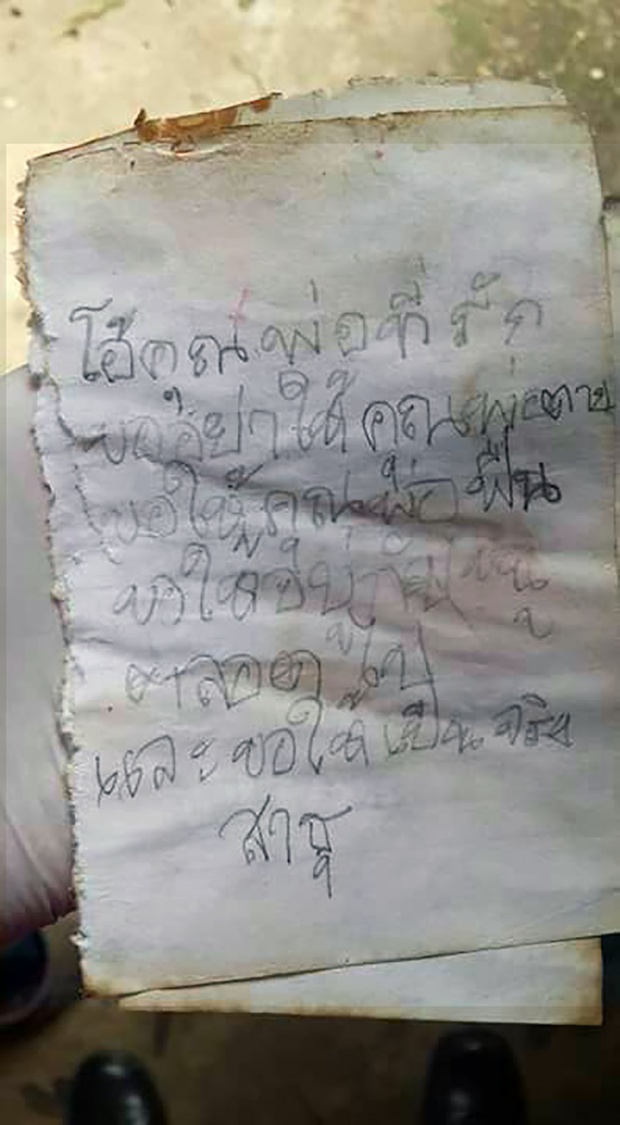 โอ้คุณพ่อที่รัก
ขออย่าให้คุณพ่อตาย
ขอให้คุณพ่อฟื้น
ขอให้อยู่กับหนู
ตลอดไป
และขอให้เป็นจริง
สาธุ